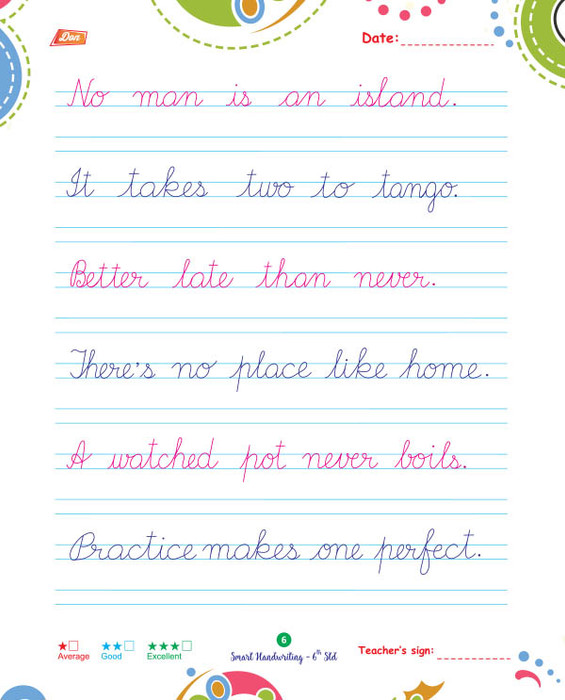 Don
Date:
No man is an island.
It takes two to tango.
Better late than never.
There's no place like home.
A watched pot never boils.
Practice makes one perfect.
6
Average Good Excellent
Smart Handwriting - 6th Std
Teacher's sign: